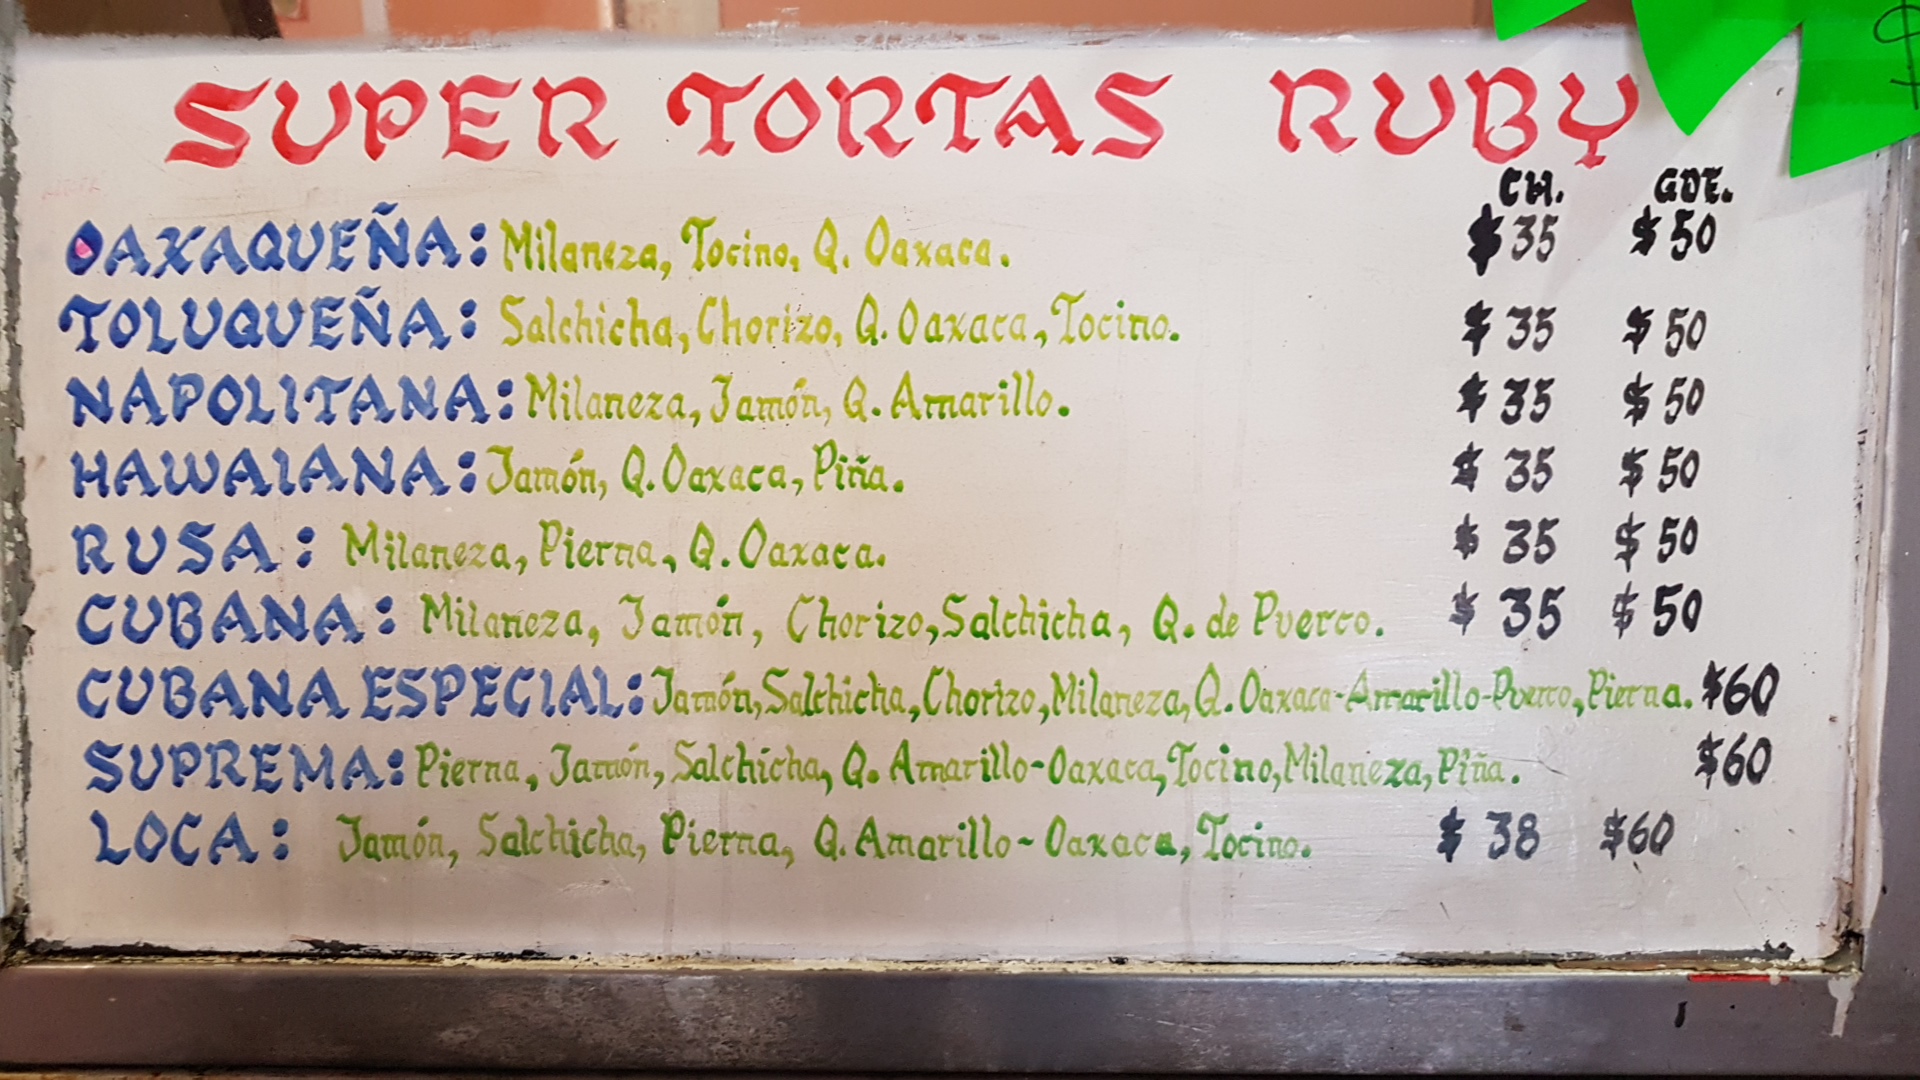 SUPER TORTAS RUBY
CH. GDE.
OAXAQUEÑA: Milaneza, Tocino, Q. Oaxaca. $35 $50
TOLUQUEÑA: Salchicha, Chorizo, Q. Oaxaca, Tocino. $35 $50
NAPOLITANA: Milaneza, Jamón, Q. Amarillo. $35 $50
HAWAIANA: Jamón, Q. Oaxaca, Piña. $35 $50
RUSA: Milaneza, Pierna, Q. Oaxaca. $35 $50
CUBANA: Milaneza, Jamón, Chorizo, Salchicha, Q. de Puerco. $35 $50
CUBANA ESPECIAL: Jamón, Salchicha, Chorizo, Milaneza, Q. Oaxaca-Amarillo-Puerco, Pierna. $60
SUPREMA: Pierna, Jamón, Salchicha, Q. Amarillo-Oaxaca, Tocino, Milaneza, Piña. $60
LOCA: Jamón, Salchicha, Pierna, Q. Amarillo-Oaxaca, Tocino. $38 $60